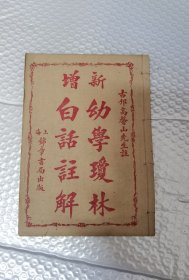 古邗高馨山先生註
新增
幼學瓊林
白話註解
上海錦章書局出版